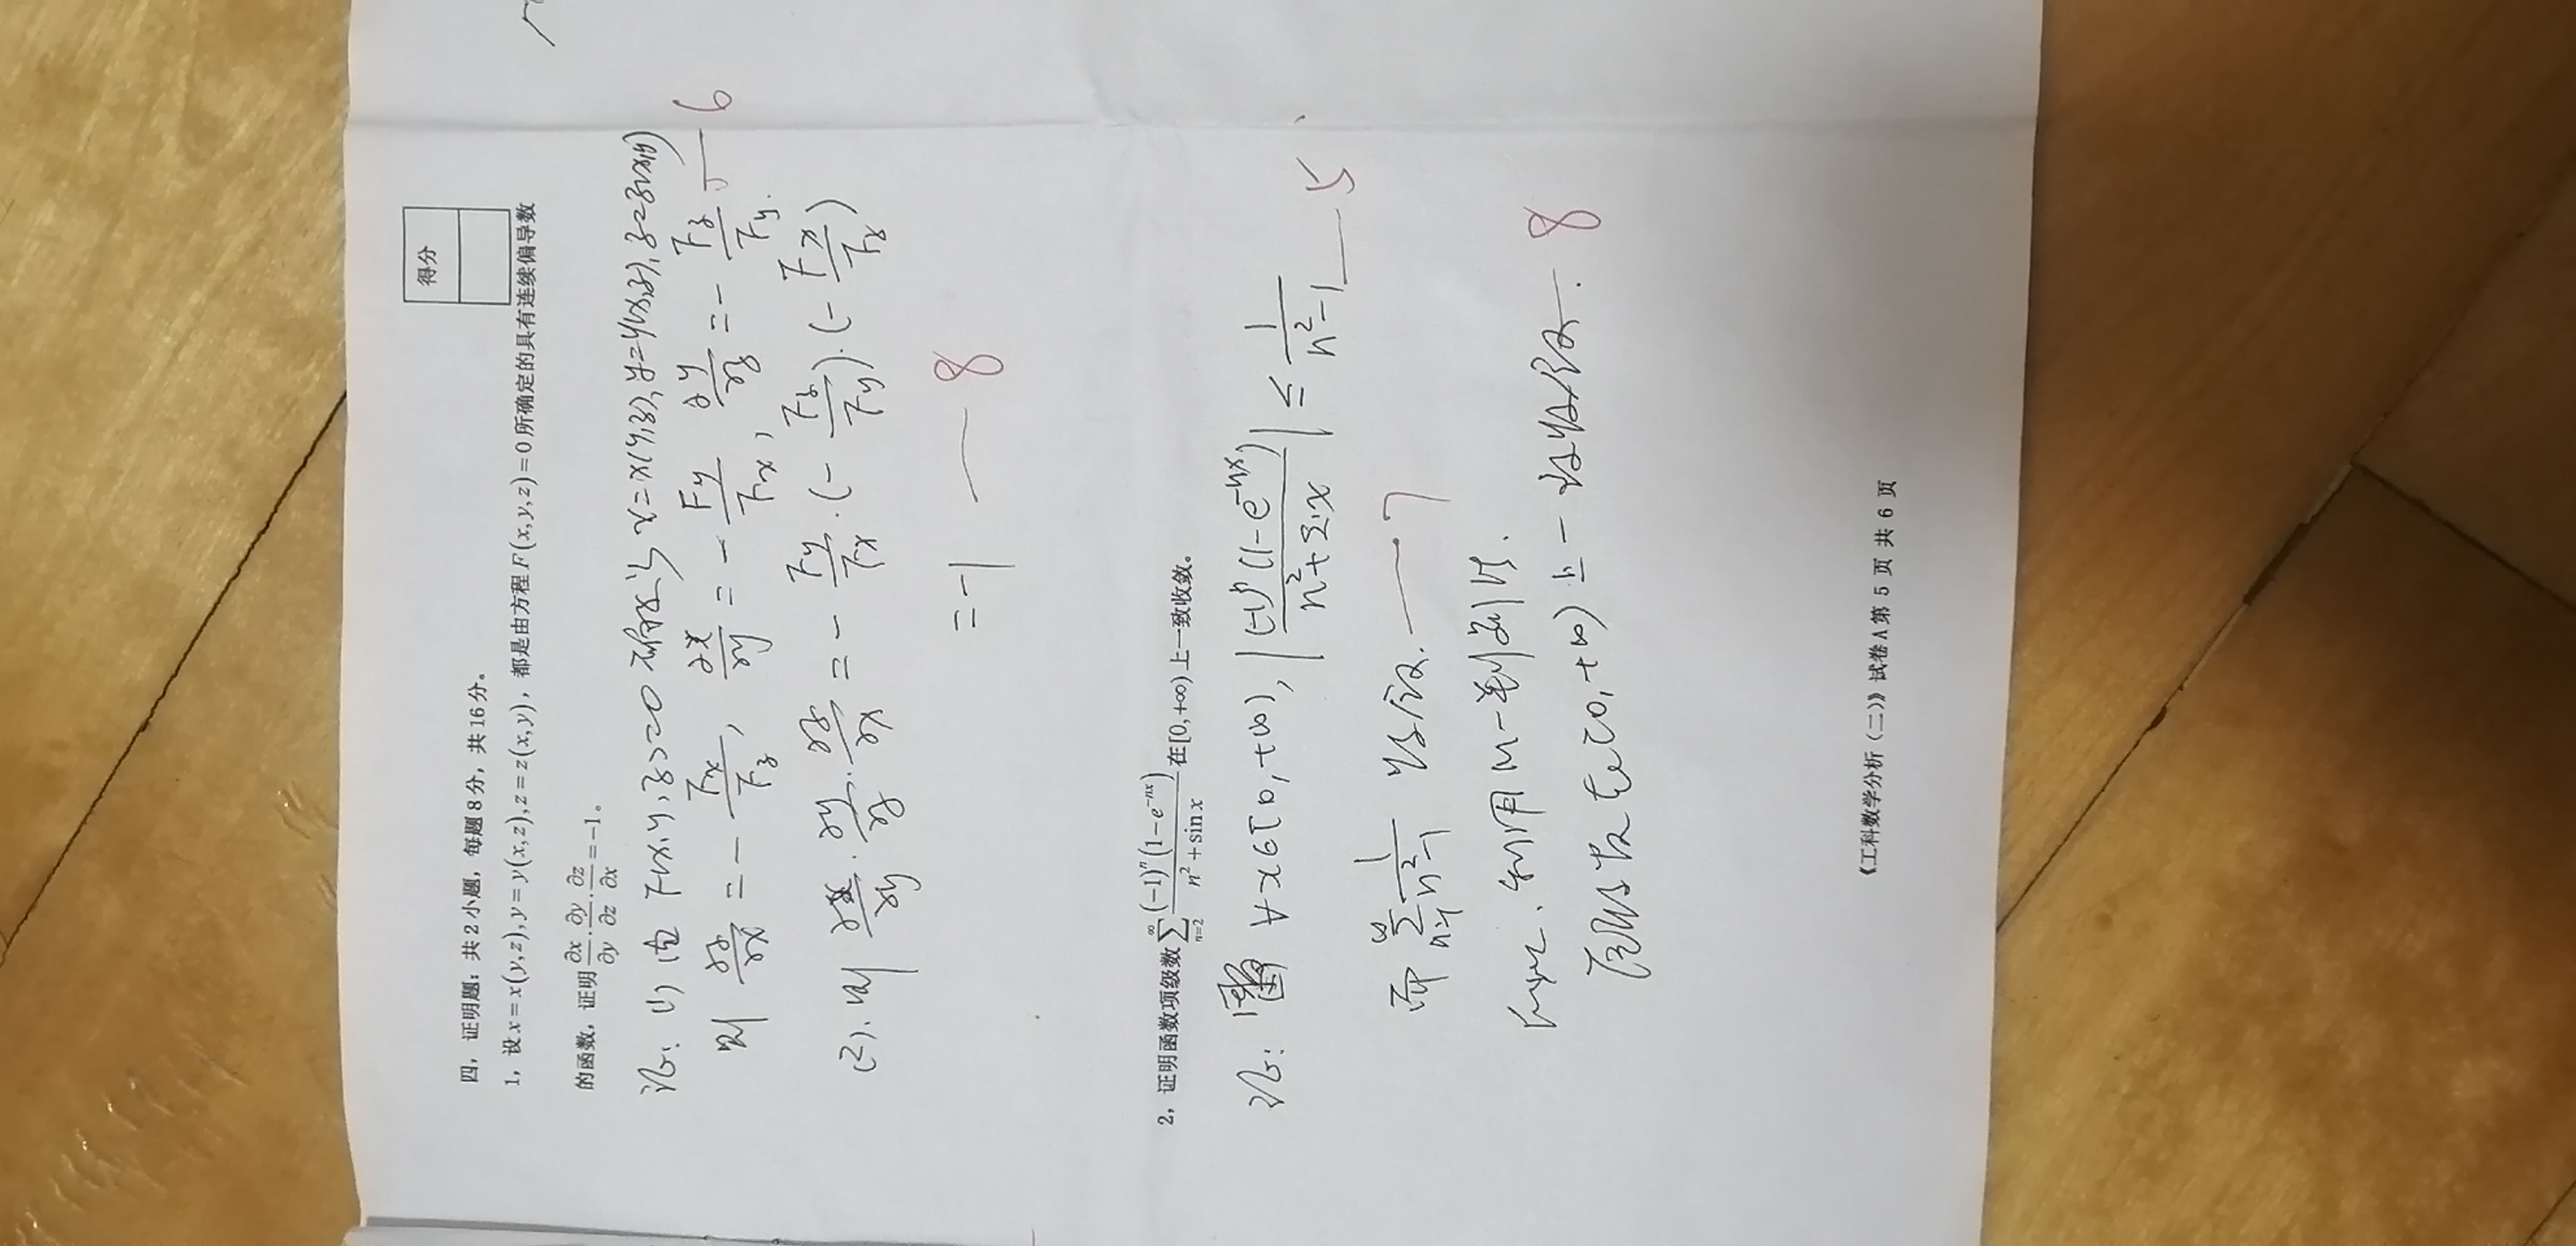 得分
四，证明题：共2小题，每题8分，共16分。
1，设x=x(y,z),y=y(x,z),z=z(x,y)，都是由方程F(x,y,z)=0所确定的具有连续偏导数
的函数，证明∂x/∂y·∂y/∂z·∂z/∂x=-1。
证：(1) 由 F(x,y,z)=0 确定了 x=x(y,z),y=y(x,z),z=z(x,y)
则 ∂z/∂x = -Fx/Fz, ∂x/∂y = -Fy/Fx, ∂y/∂z = -Fz/Fy. — 6
(2). 则 ∂x/∂y·∂y/∂z·∂z/∂x = -Fy/Fx·(-Fz/Fy)·(-Fx/Fz)
=-1 — 8
2，证明函数项级数∑_{n=2}^{∞} (-1)^n(1-e^{-nx})/(n²+sin x)在[0,+∞)上一致收敛。
证: ∀x∈[0,+∞), |(-1)^n(1-e^{-nx})/(n²+sin x)| ≤ 1/(n²-1) — 5
而 ∑ 1/(n²-1) 收敛. — 7
利用M-判别法.
在[0,+∞)上一致收敛. 8
《工科数学分析（二）》试卷A第 5 页 共 6 页